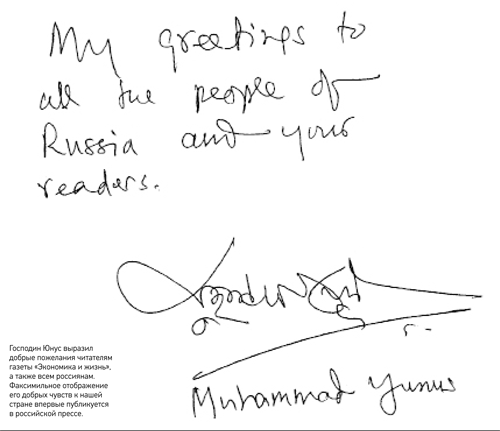 My greetings to
all the people of
Russia and your
readers.
Muhammad Yunus
Господин Юнус выразил
добрые пожелания читателям
газеты «Экономика и жизнь»,
а также всем россиянам.
Факсимильное отображение
его добрых чувств к нашей
стране впервые публикуется
в российской прессе.